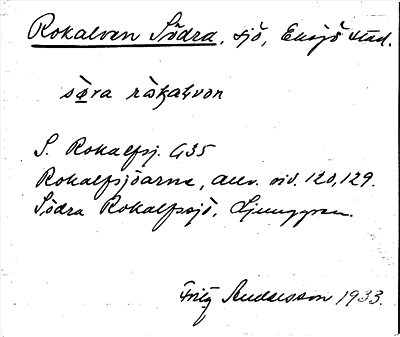 Rokalven Södra, sjö, Eksjö stad.
söra ròkalvon
S. Rokalfsj. G35
Rokalfsjöarne, Allv. sid. 120, 129.
Södra Rokalfssjö, Ljunggren.
Fritz Andersson 1933.